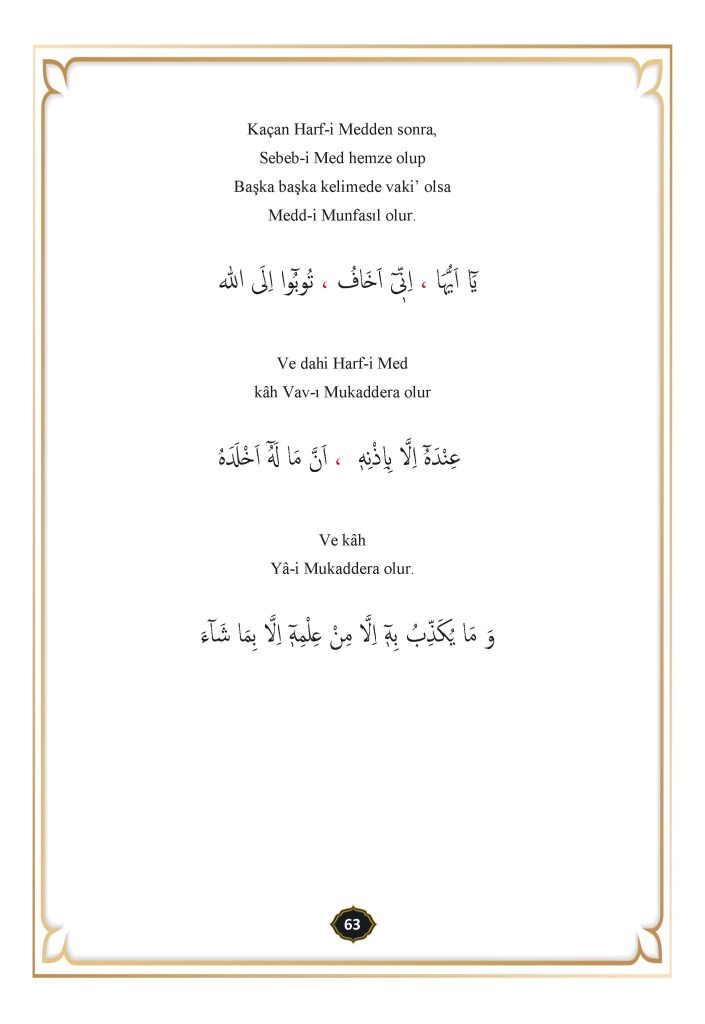 Kaçan Harf-i Medden sonra,
Sebeb-i Med hemze olup
Başka başka kelimede vaki’ olsa
Medd-i Munfasıl olur.
يَٓا اَيُّهَا ، اِنّ۪ٓي اَخَافُ ، تُوبُٓوا اِلَى الله
Ve dahi Harf-i Med
kâh Vav-ı Mukaddera olur
عِنْدَهُٓ اِلَّا بِاِذْنِه۪ ، اَنَّ مَا لَهُٓ اَخْلَدَهُ
Ve kâh
Yâ-i Mukaddera olur.
وَ مَا يُكَذِّبُ بِه۪ٓ اِلَّا مِنْ عِلْمِه۪ٓ اِلَّا بِمَا شَٓاءَ
63